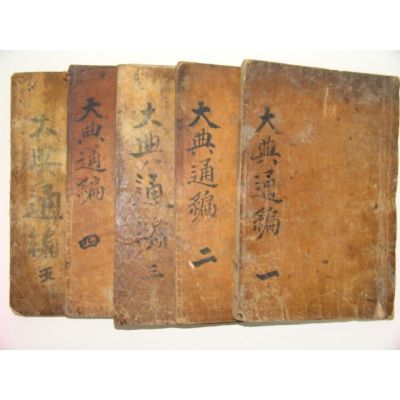 大典通編 一
大典通編 二
大典通編 三
大典通編 四
大典通編 五